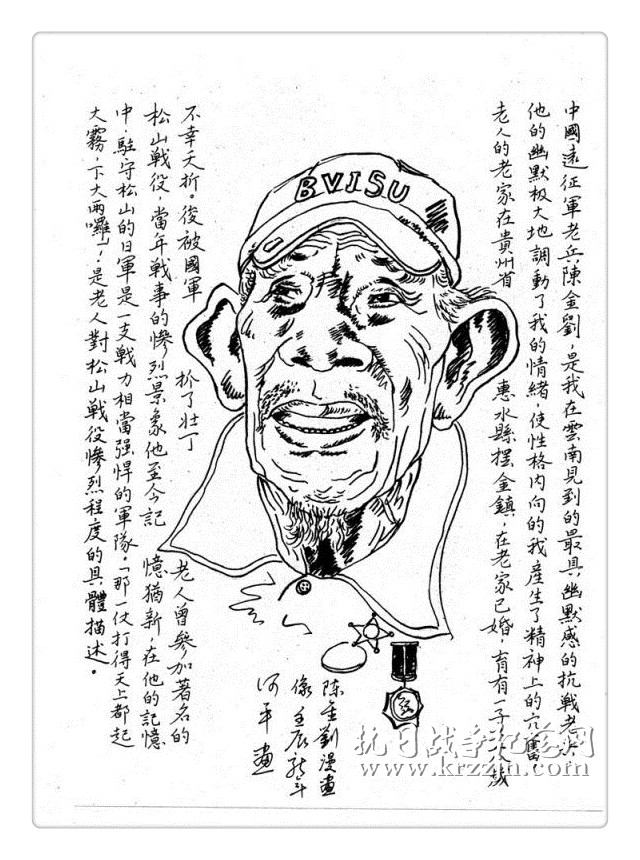 中國遠征軍老兵陳金劉，是我在雲南見到的最具幽默感的抗戰老兵
他的幽默极大地調動了我的情緒，使性格内向的我產生了精神上的亢奮，
老人的老家在貴州省 惠水縣摆金鎮，在老家已婚，育有一子 歲
不幸夭折。後被國軍 抓了壯丁 老人曾參加著名的
松山戰役，當年戰事的慘烈景象他至今記 憶猶新，在他的記憶
中，駐守松山的日軍是一支戰力相當强悍的軍隊。「那一仗打得天上都起
大霧，下大雨囉」，是老人對松山戰役慘烈程度的具體描述。
BVISU
陈金劉漫畫
像壬辰
河平畫
抗日战争纪念网
www.krzzjn.com